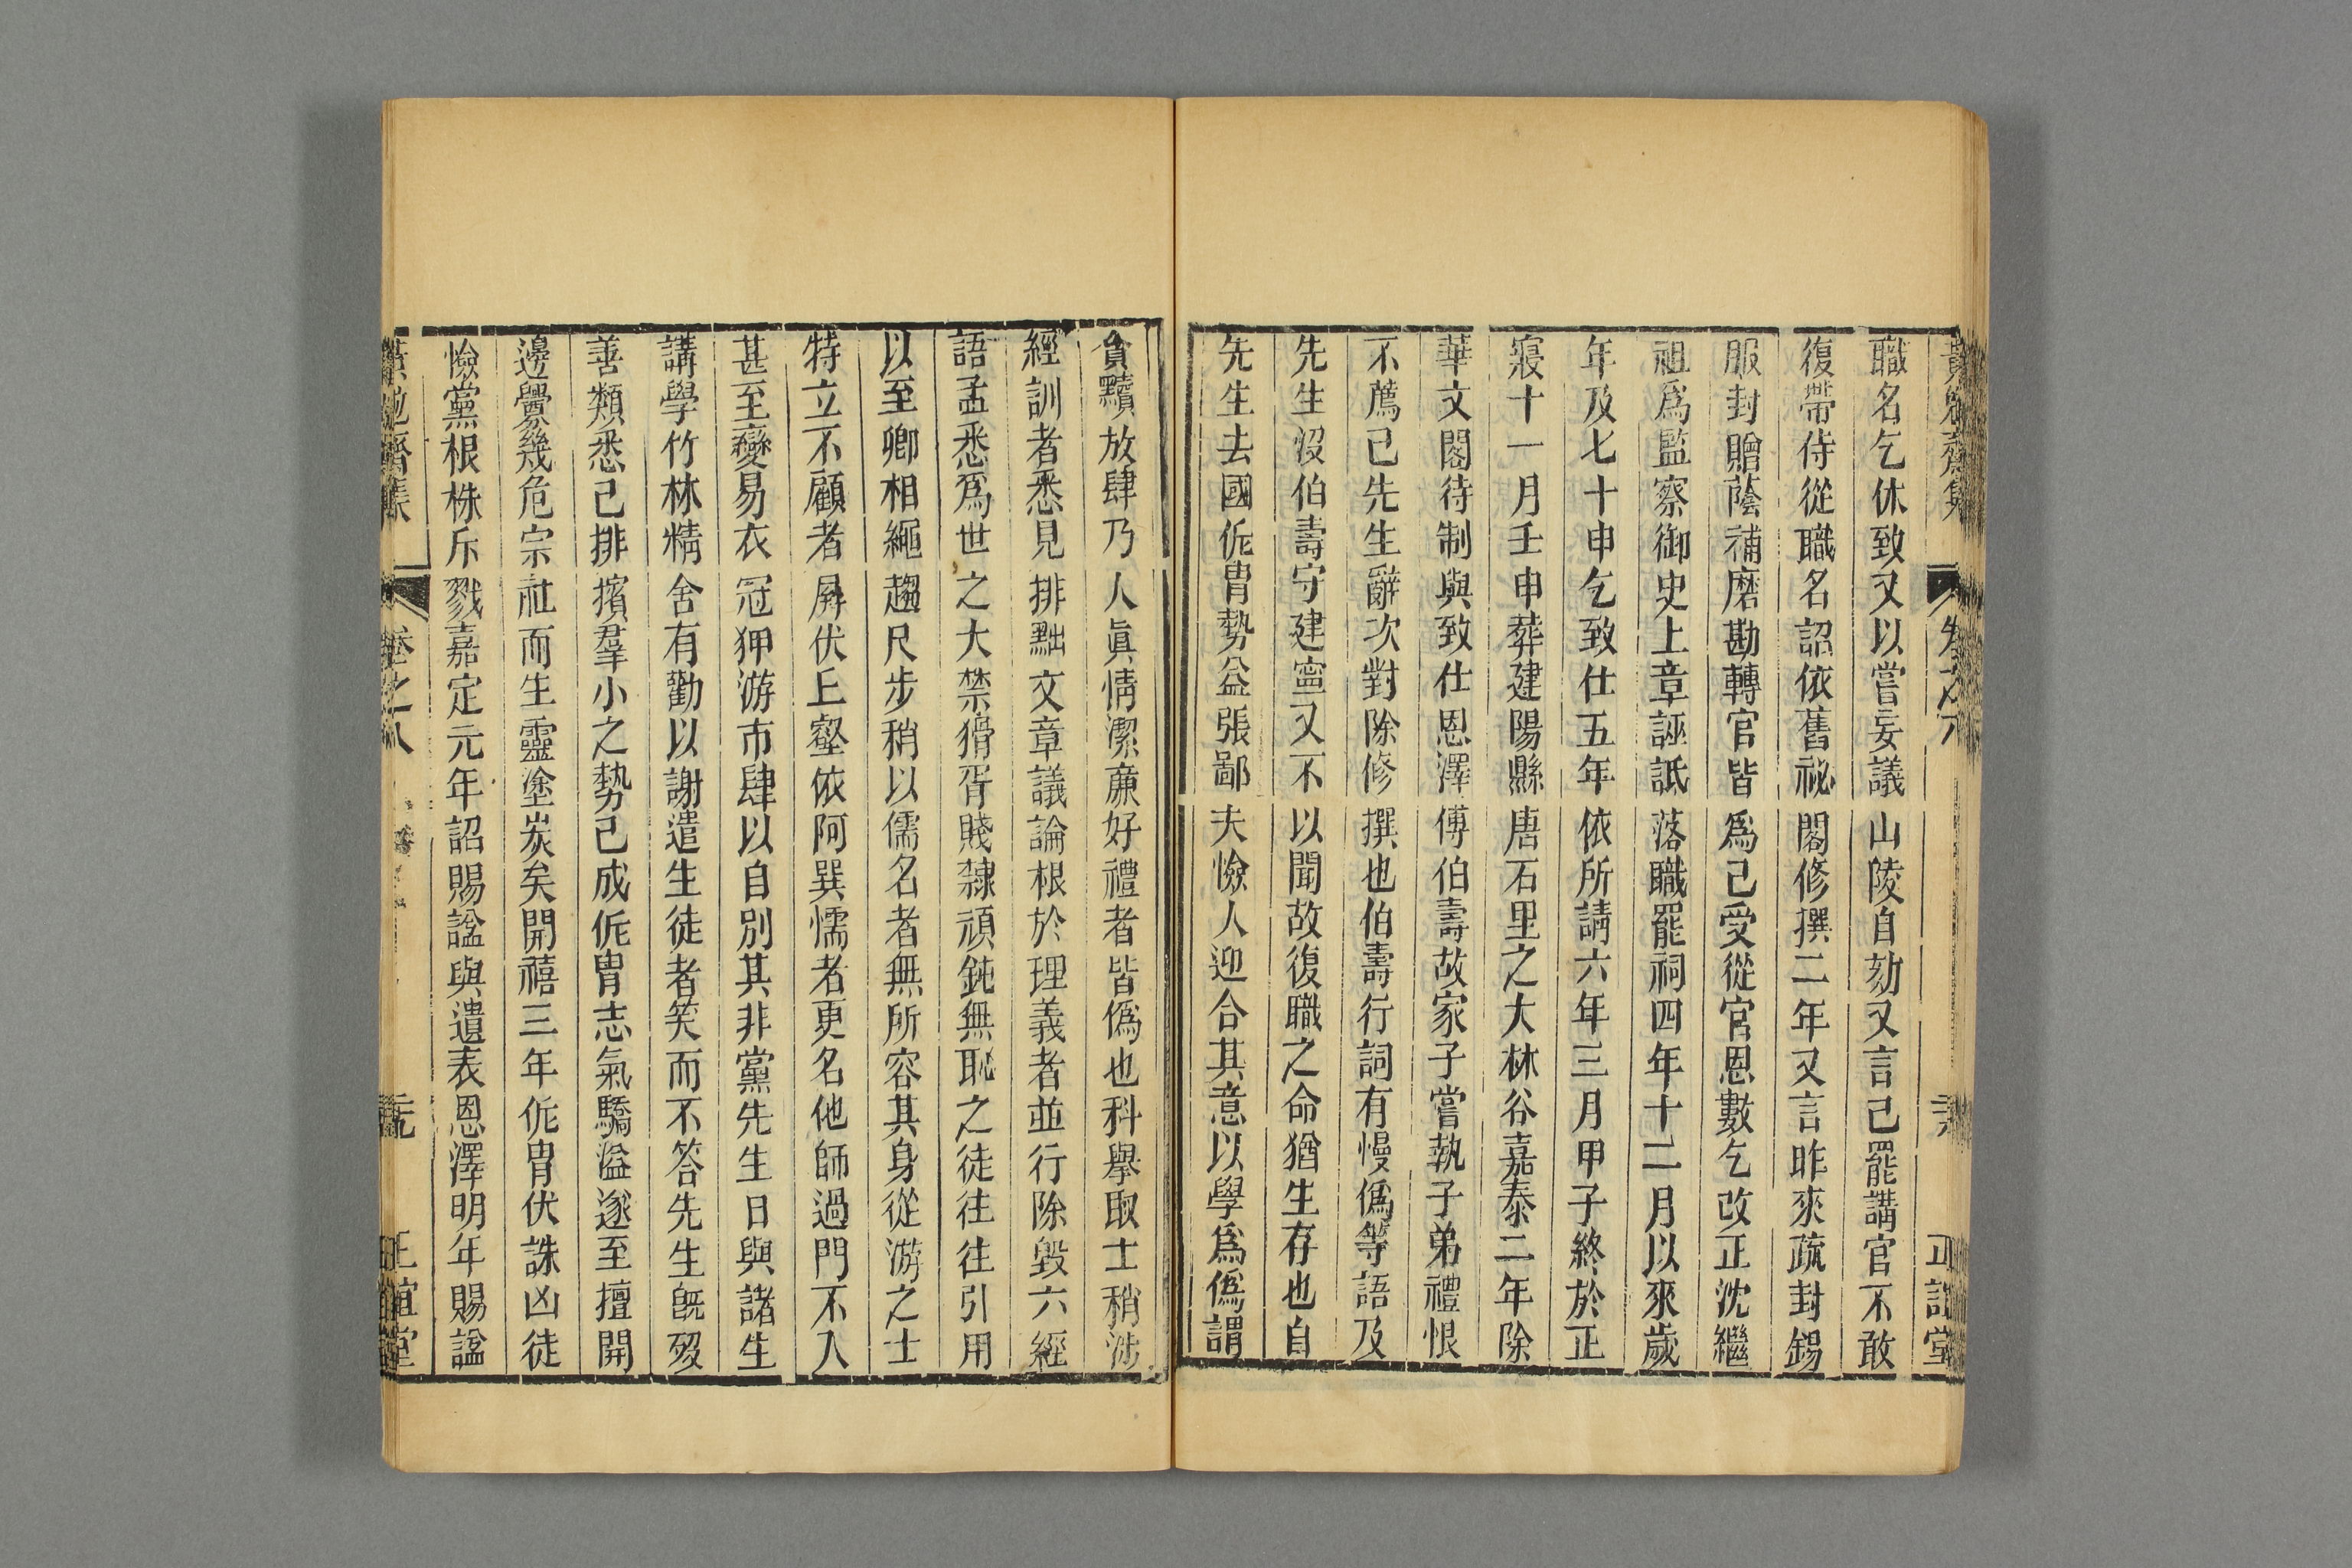 職名乞休致又以嘗妄議山陵自劾又言已罷講官不敢
復帶侍從職名詔依舊祕閣修撰二年又言昨來疏封錫
服封贈蔭補磨勘轉官皆爲已受從官恩數乞改正沈繼
祖爲監察御史上章誣詆落職罷祠四年十二月以來歲
年及七十申乞致仕五年依所請六年三月甲子終於正
寢十一月壬申葬建陽縣唐石里之大林谷嘉泰二年除
華文閣待制與致仕恩澤傅伯壽故家子嘗執子弟禮恨
不薦已先生辭次對除修撰也伯壽行詞有慢僞等語及
先生沒伯壽守建寧又不以聞故復職之命猶生存也自
先生去國侂胄勢益張鄙夫憸人迎合其意以學爲僞謂
貪黷放肆乃人眞情潔廉好禮者皆僞也科舉取士稍涉
經訓者悉見排黜文章議論根於理義者並行除毀六經
語孟悉爲世之大禁猾胥賤隸頑鈍無恥之徒往往引用
以至卿相繩趨尺步稍以儒名者無所容其身從游之士
特立不顧者屏伏丘壑依阿巽懦者更名他師過門不入
甚至變易衣冠狎游市肆以自別其非黨先生日與諸生
講學竹林精舍有勸以謝遣生徒者笑而不答先生旣歿
善類悉已排擯羣小之勢已成侂胄志氣驕溢遂至擅開
邊釁幾危宗社而生靈塗炭矣開禧三年侂胄伏誅凶徒
憸黨根株斥戮嘉定元年詔賜諡與遺表恩澤明年賜諡
卷之八
正誼堂